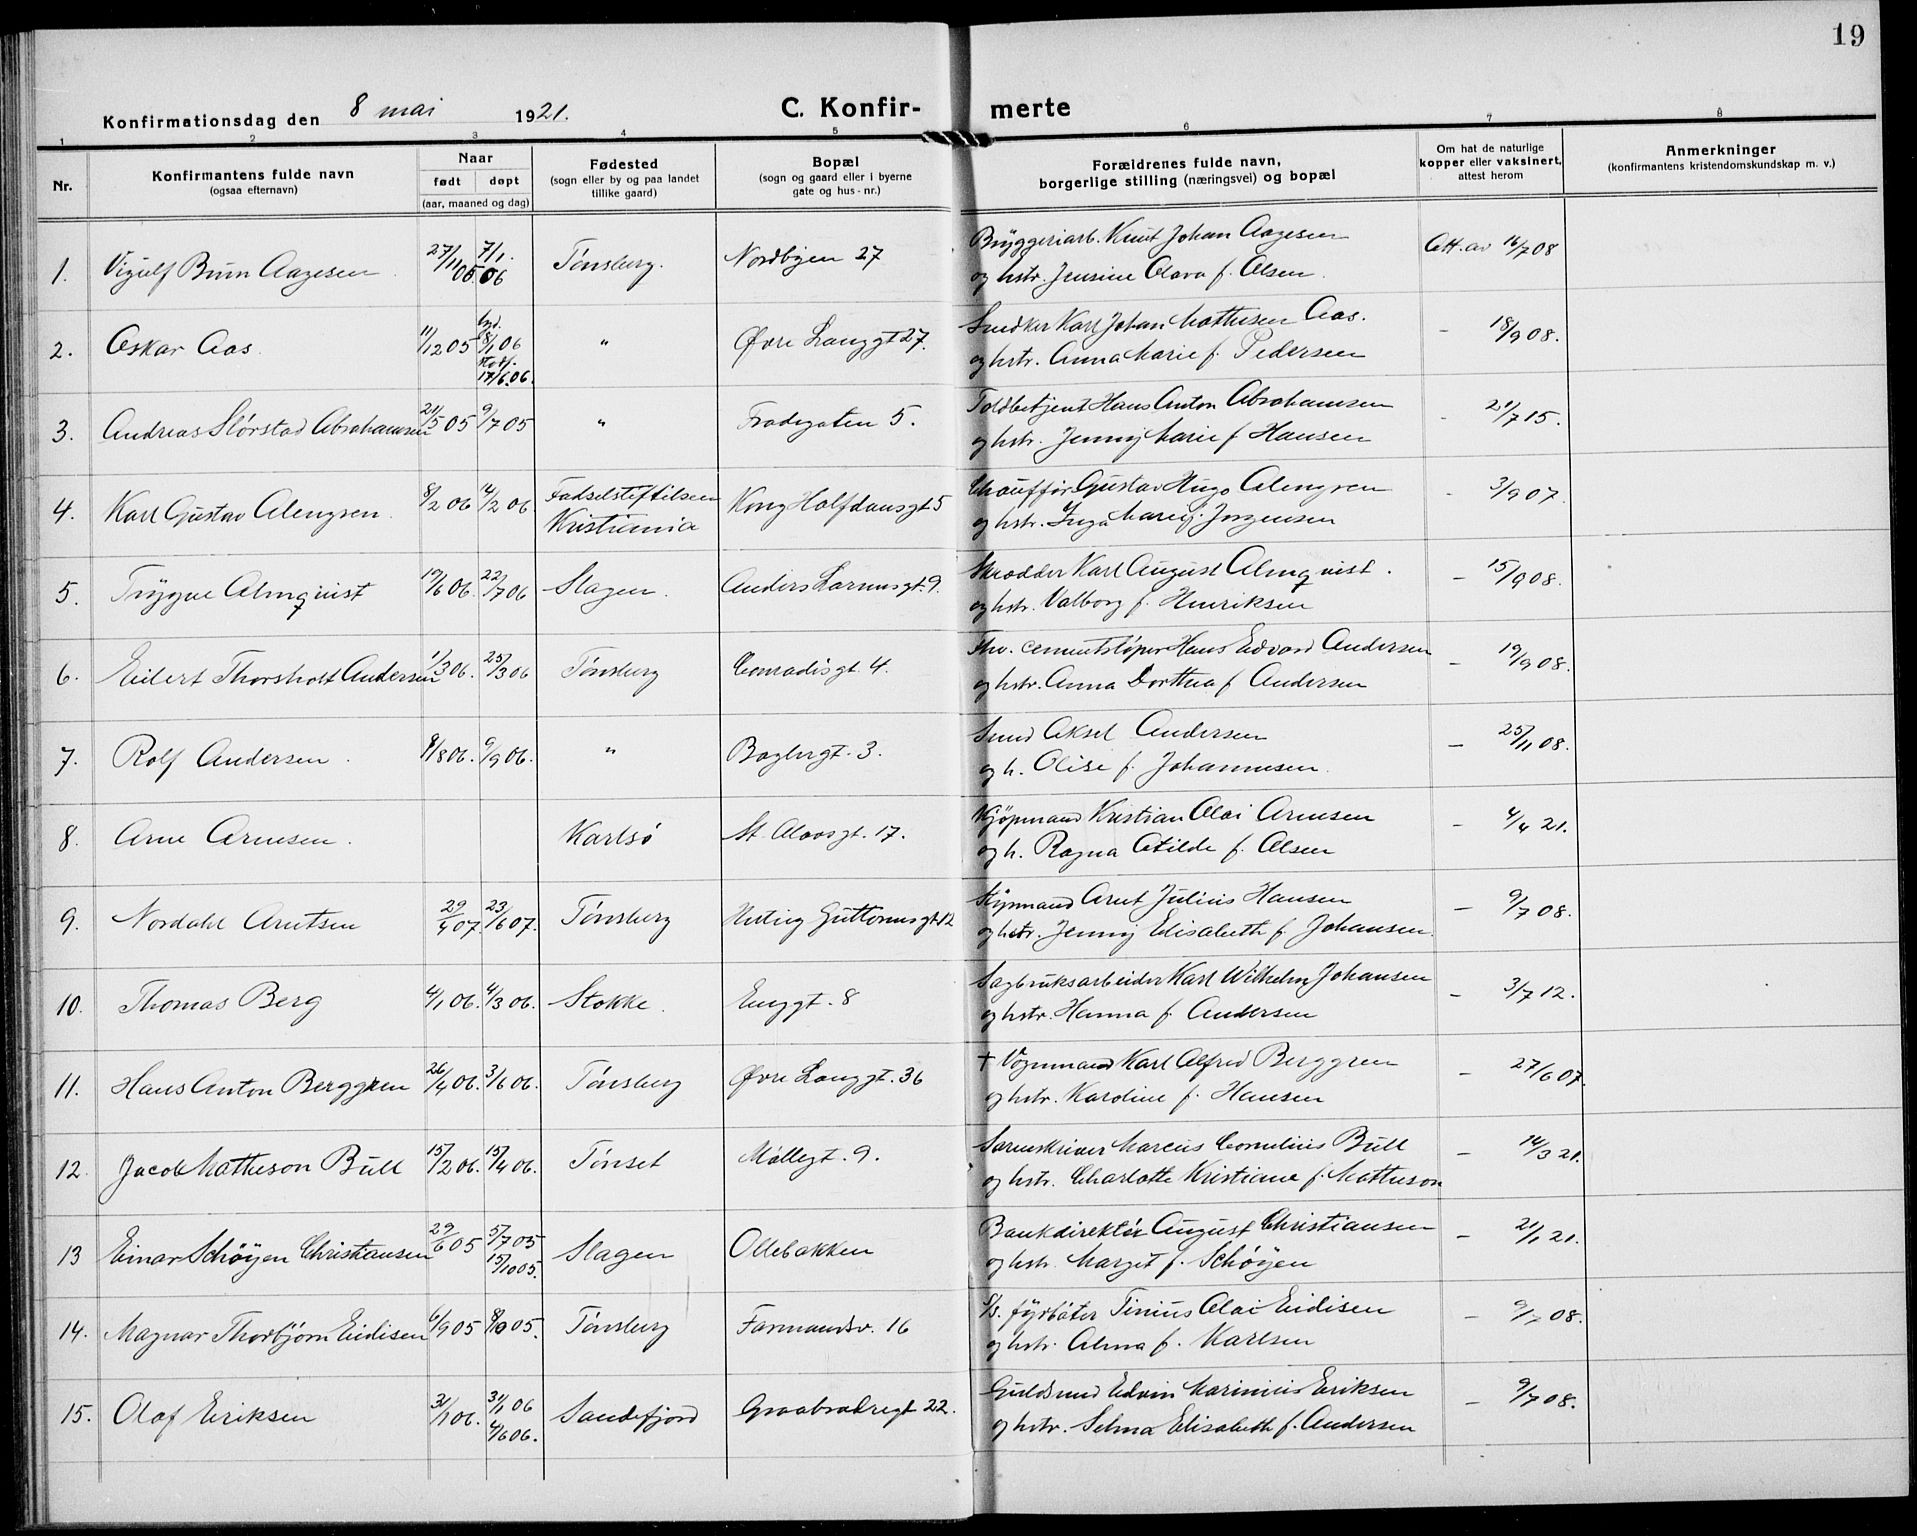 19
Konfirmationsdag den 8 mai 1921.
C. Konfir- merte
1 2 3 4 5 6 7 8
Nr.
Konfirmantens fulde navn
(ogsaa efternavn)
Naar
født døpt
(aar, maaned og dag)
Fødested
(sogn eller by og paa landet
tillike gaard)
Bopæl
(sogn og gaard eller i byerne
gate og hus-nr.)
Forældrenes fulde navn,
borgerlige stilling (næringsvei) og bopæl
Om hat de naturlige
kopper eller vaksinert,
attest herom
Anmerkninger
(konfirmantens kristendomskundskap m. v.)
Bryggeriarb. Knut Johan Aagesen
1. Aagesen 27/11 05. 7/1. 06 Tønsberg. Nordbyen 27 Att. av 16/7 08
og hstr. Jensine Olava f. Olsen.
Snedker Karl Johan Mathisen Aas.
2. Oskar Aas. 11/12 05 8/1 06 17/6.06. " Øvre Langgt 27. - 18/9 08.
og hstr. Anna Marie f. Pedersen
Toldbetjent Hans Anton Abrahamsen
3. Andreas Slørstad Abrahamsen 21/5 05 9/7 05 " Frodegaten 5. - 21/7 15.
og hstr. Jenny Marie f Hansen
Chauffør Gustav Hugo Almgren
4. Karl Gustav Almgren. 8/2 06 14/2 06. Fødselstiftelsen Kristiania Kong Halfdansgt 5 - 3/9 07.
og hstr. Inga Marie f. Jørgensen
Skrædder Karl August Almqvist.
5. Trygve Almqvist 19/6 06. 22/7 06 Slagen. Anders gt. 9. - 15/9 08.
og hstr. Valborg f. Henriksen
Fhv. cementstøper Hans Edvard Andersen
6. Eilert Thorsholt Andersen 1/3 06. 25/3 06 Tønsberg Conradisgt. 4. - 19/9 08.
og hstr. Anna Dorthea f Andersen
Smed Aksel Andersen
7. Rolf Andersen. 9/8 06. 9/9 06. " Baglergt. 3. - 25/11 08.
og h. Olise f. Johannesen.
Kjøpmand Kristian Olai Arnesen
8. Arne Arnesen. Karlsø St. Olavsgt. 17. - 4/4 21.
og h. Ragna Otilde f. Olsen
Styrmand Arnt Julius Hansen
9. Nordahl Arntsen 29/4 07. 23/6 07. Tønsberg Hertug Guttormsgt 12 - 9/7 08.
og hstr. Jenny Elisabeth f Johansen.
Sagbruksarbeider Karl Wilhelm Johansen
10. Thomas Berg 4/1 06. 4/3 06. Stokke. Enggt. 8 - 3/7 12.
og hstr. Hanna f. Andersen
† Vognmand Karl Alfred Berggren
11. Hans Anton Berggren 26/4 06. 3/6 06. Tønsberg Øvre Langgt. 36 - 27/6 07.
og hstr. Karoline f. Hansen
Sorenskriver Marcus Cornelius Bull
12. Jacob Matheson Bull 15/2 06. 15/4 06. Tønset Møllegt. 9. - 14/3 21.
og hstr. Charlotte Kristiane f. Matheson
Bankdirektør August Christiansen
13 Einar Schøyen Christiansen 29/6 05 5/7 05 15/10 05. Slagen Ollebakken - 21/1 21.
og hstr. Marget f. Schøyen
S/s. fyrbøter Tinius Olai Eidisen
14. Magnar Thorbjørn Eidisen 6/9 05 8/10 05. Tønsberg Farmandsv. 16 - 9/7 08.
og hstr. Alma f. Karlsen
Guldsmed Edvin Marinius Eriksen
15. Olaf Eriksen 31/1 06. 31/1 06 4/6 06. Sandefjord Graabrødregt 22. - 9/7 08.
og hstr. Selma Elisabeth f. Andersen